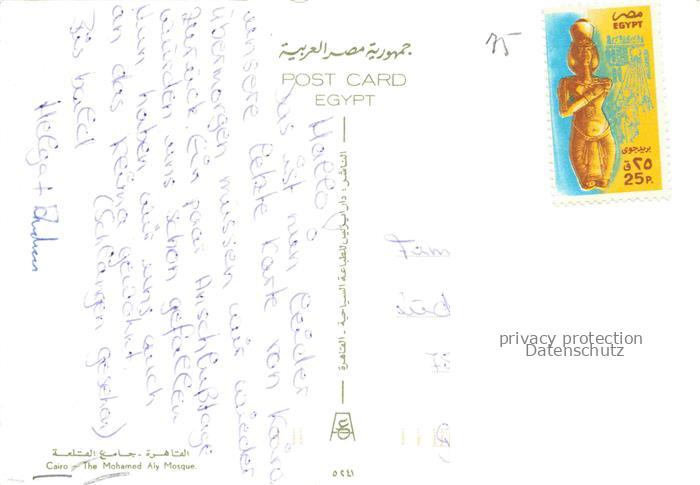 جمهورية مصر العربية
POST CARD
EGYPT
Hallo,
das ist nun leider
unsere letzte Karte von Kairo
übermorgen müssen wir wieder
zurück. Ein paar Anschlußtage
würden uns schon gefallen
nun haben wir uns auch
an das Klima gewöhnt.
(Schlangen gesehen)
Bis bald
Helga +
الناشر: دار لهنرت للطباعة السياحية - القاهرة
75
مصر
EGYPT
بريد جوى
٢٥ ق
25 P.
Fam
privacy protection
Datenschutz
القاهرة - جامع القلعة
Cairo - The Mohamed Aly Mosque.
٥٢٤١